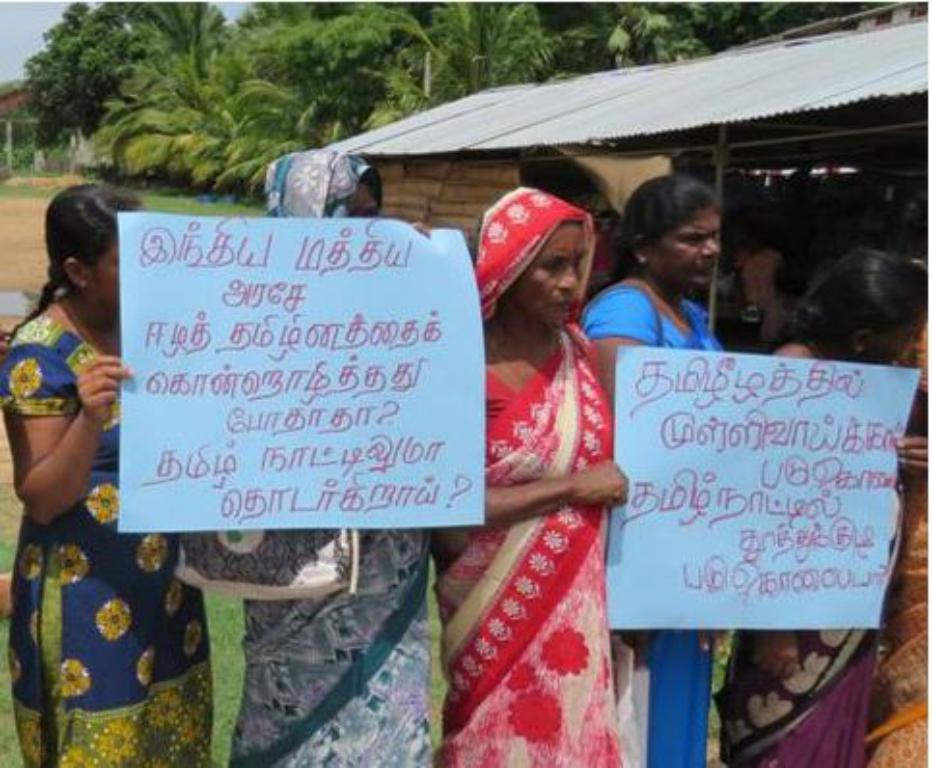 இந்திய மத்திய
அரசே
ஈழத் தமிழினத்தைக்
கொன்றொழித்தது
போதாதா?
தமிழ் நாட்டிலுமா
தொடர்கிறாய்?
தமிழீழத்தில்
முள்ளிவாய்க்கால்
படுகொலை
தமிழ்நாட்டில்
தூத்துக்குடி
படுகொலையா